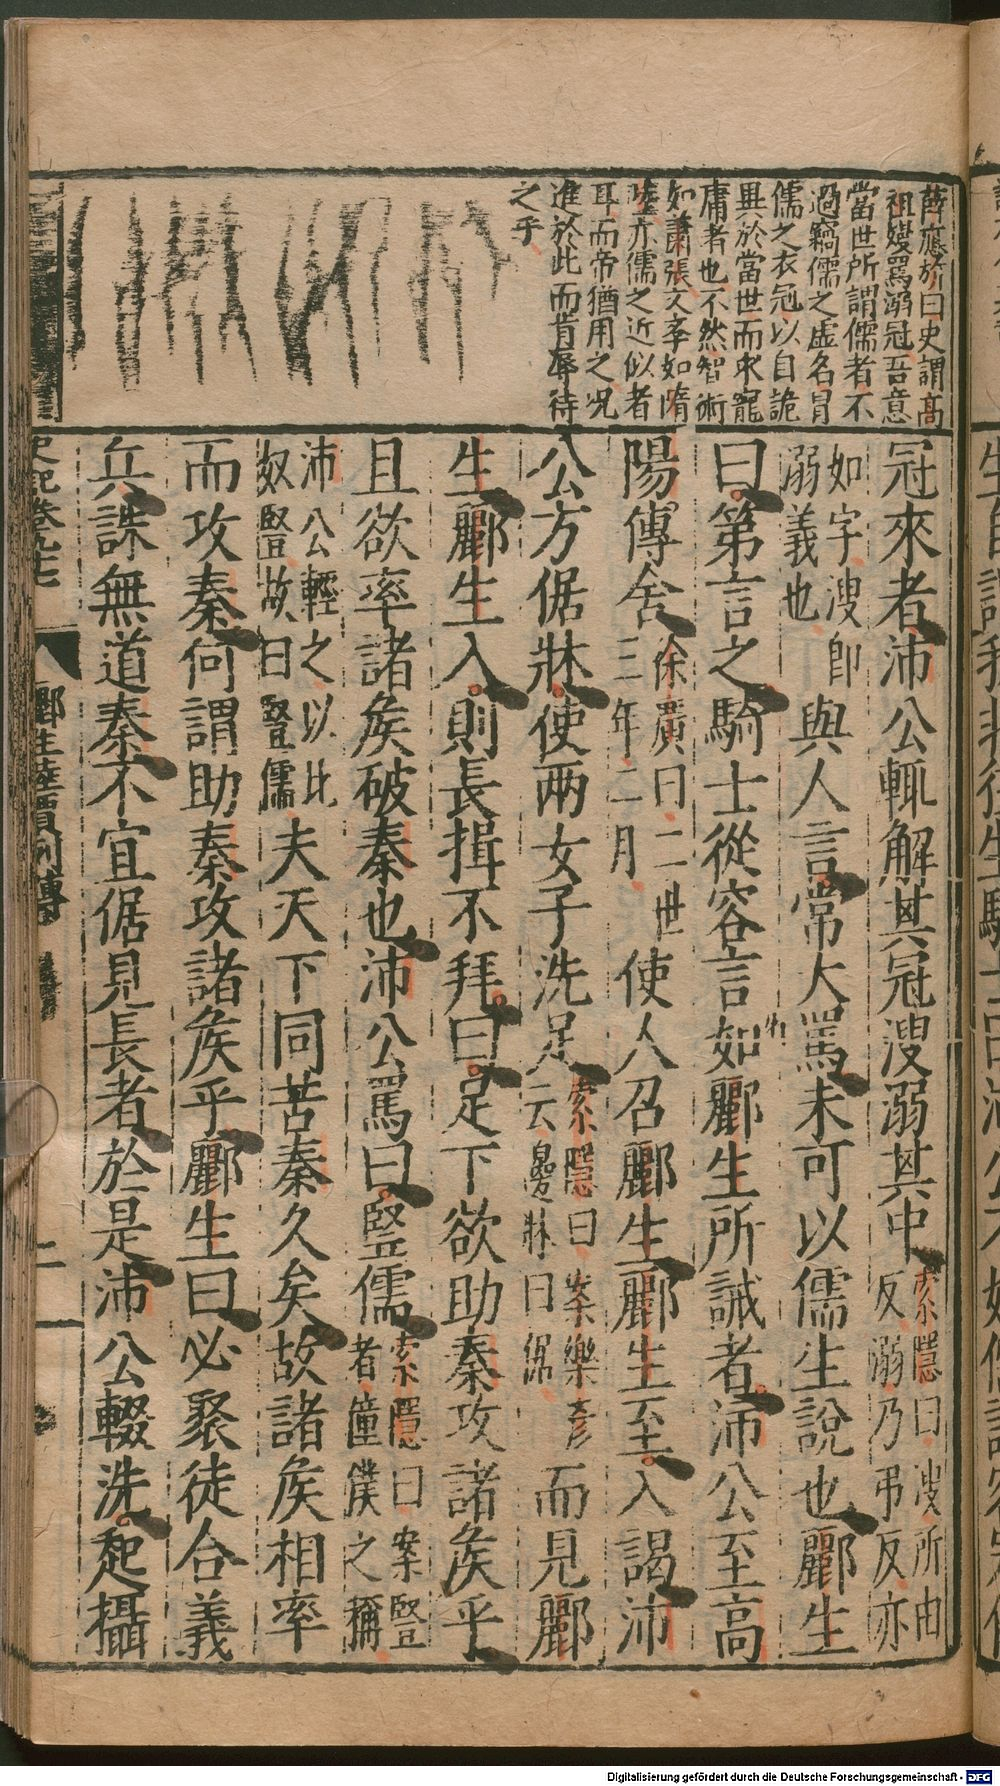 薛應旂曰史謂高
祖嫚罵溺冠吾意
當世所謂儒者不
過竊儒之虛名冐
儒之衣冠以自詭
異於當世而求寵
庸者也不然智術
如蕭張文孛如隋
陸亦儒之近似者
耳而帝猶用之况
進於此而肯辱待
之乎
冠來者沛公輒解其冠溲溺其中索隱曰溲所由反溺乃弔反亦
如字溲卽溺義也與人言常大罵未可以儒生說也酈生
曰第言之騎士從容言如酈生所誡者沛公至高
陽傳舍徐廣曰二世三年二月使人召酈生酈生至入謁沛
公方倨牀使兩女子洗足索隱曰案樂彥云邊牀曰倨而見酈
生酈生入則長揖不拜曰足下欲助秦攻諸矦乎
且欲率諸矦破秦也沛公罵曰竪儒索隱曰案竪者僮僕之稱
沛公輕之以比奴竪故曰竪儒夫天下同苦秦久矣故諸矦相率
而攻秦何謂助秦攻諸矦乎酈生曰必聚徒合義
兵誅無道秦不宜倨見長者於是沛公輟洗起攝
史記卷九十七
酈生陸賈列傳
二
Digitalisierung gefördert durch die Deutsche Forschungsgemeinschaft - DFG